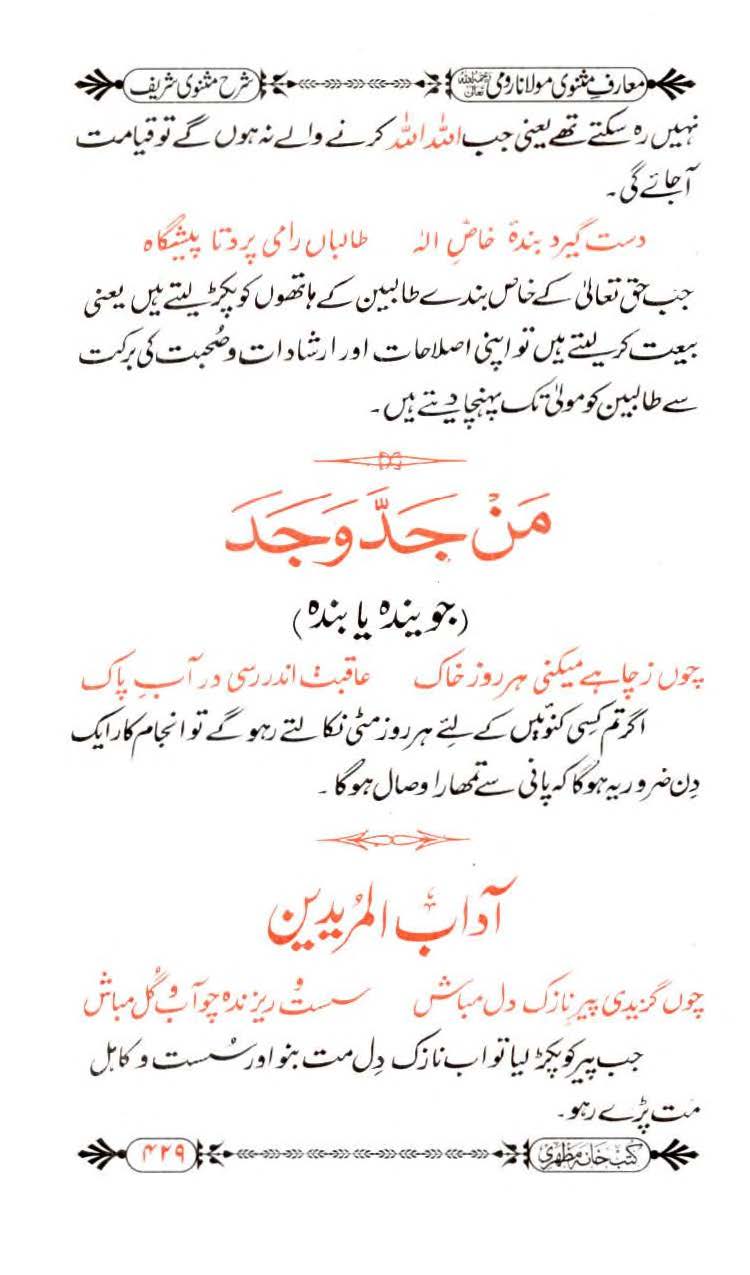 معارفِ مثنوی مولانا رومی رحمہ اللہ تعالیٰ شرح مثنوی شریف
نہیں رہ سکتے تھے یعنی جب اللہ اللہ کرنے والے نہ ہوں گے تو قیامت
آجائے گی۔
دست گیرد بندۂ خاصِ الہٰ طالباں را می پرد تا پیشگاہ
جب حق تعالیٰ کے خاص بندے طالبین کے ہاتھوں کو پکڑ لیتے ہیں یعنی
بیعت کرلیتے ہیں تو اپنی اصلاحات اور ارشادات و صُحبت کی برکت
سے طالبین کو مولیٰ تک پہنچا دیتے ہیں۔
مَنْ جَدَّ وَجَدَ
(جویندہ یابندہ)
چوں ز چاہے میکنی ہر روز خاک عاقبت اندر رسی در آبِ پاک
اگر تم کسی کنوئیں کے لئے ہر روز مٹی نکالتے رہو گے تو انجام کار ایک
دِن ضرور یہ ہوگا کہ پانی سے تمھارا وصال ہوگا۔
آدابُ المریدین
چوں گزیدی پیر نازک دل مباش سست و ریزندہ چو آب و گُل مباش
جب پیر کو پکڑ لیا تو اب نازک دِل مت بنو اور سُست و کاہل
مت پڑے رہو۔
کتب خانہ مظہری ۴۲۹